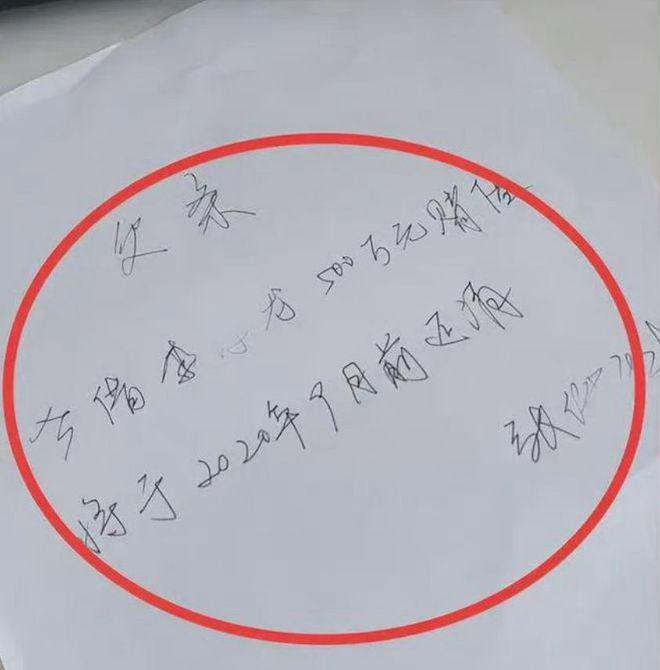 欠条
今借李小龙500万元赌债
将于2020年9月前还清